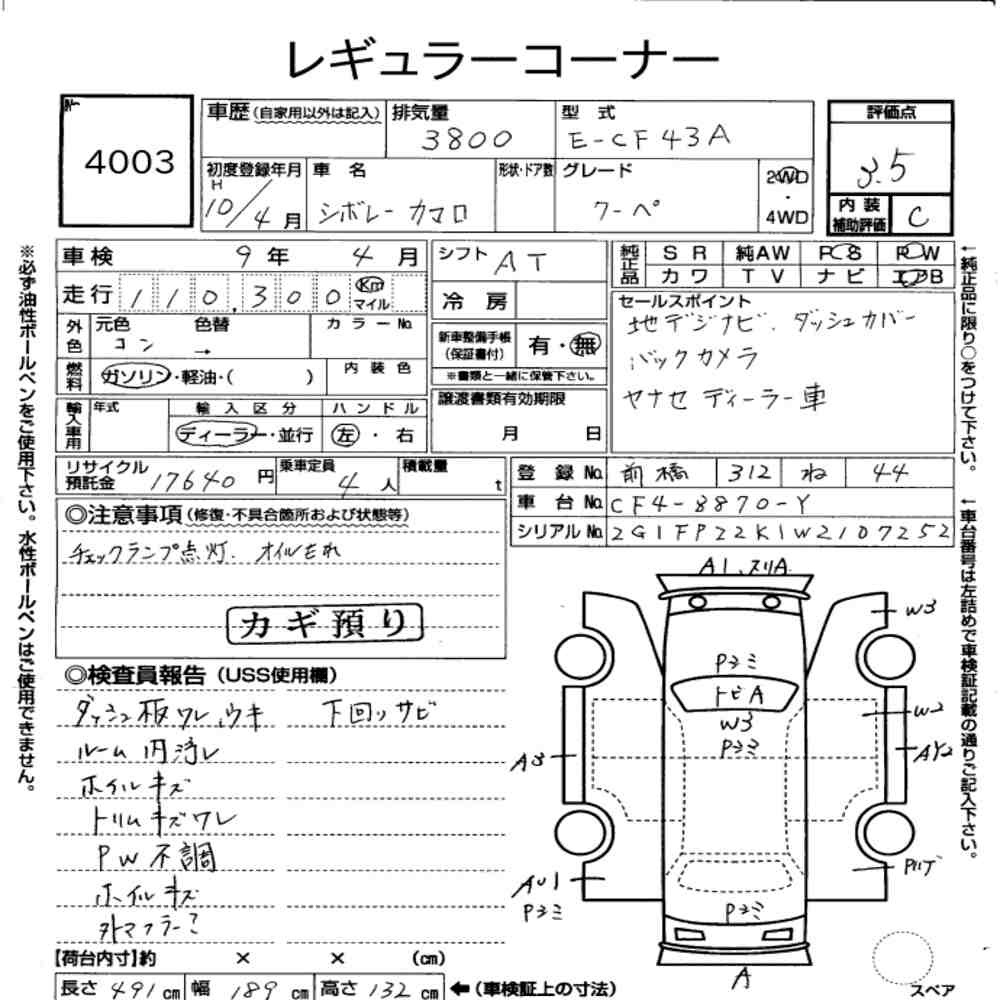 レギュラーコーナー
4003
車歴(自家用以外は記入)
排気量 3800
型式 E-CF43A
評価点 3.5
初度登録年月 H 10/4月
車名 シボレーカマロ
形状・ドア数
グレード クーペ
2WD・4WD
内装補助評価 C
車検 9年 4月
シフト AT
純正品 SR 純AW PS PW
カワ TV ナビ エアB
走行 110,300 Km マイル
冷房
セールスポイント
地デジナビ、ダッシュカバー
バックカメラ
ヤナセディーラー車
外色 元色 コン 色替 → カラーNo.
新車整備手帳(保証書付) 有・無
※書類と一緒に保管下さい。
燃料 ガソリン・軽油・( )
内装色
譲渡書類有効期限
月 日
輸入車用 年式 輸入区分 ハンドル
ディーラー・並行 左・右
リサイクル預託金 17640円
乗車定員 4人
積載量 t
登録No. 前橋 312 ね 44
車台No. CF4-8870-Y
シリアルNo. 2G1FP22K1W2107252
◎注意事項(修復・不具合箇所および状態等)
チェックランプ点灯、オイルもれ
カギ預り
◎検査員報告(USS使用欄)
ダッシュ板ワレ、ウキ 下回りサビ
ルーム内汚レ
ホイルキズ
トリムキズワレ
PW不調
ホイルキズ
外マフラー?
A1、スリA
W3
Pヨミ
トビA
W3
Pヨミ
W2
A3
AY2
AU1
Pヨミ
Pハゲ
Pヨミ
A
スペア
【荷台内寸】約 × × (cm)
長さ 491cm 幅 189cm 高さ 132cm ←(車検証上の寸法)
※必ず油性ボールペンをご使用下さい。水性ボールペンはご使用できません。
←純正品に限り○をつけて下さい。
←車台番号は左詰めで車検証記載の通りご記入下さい。